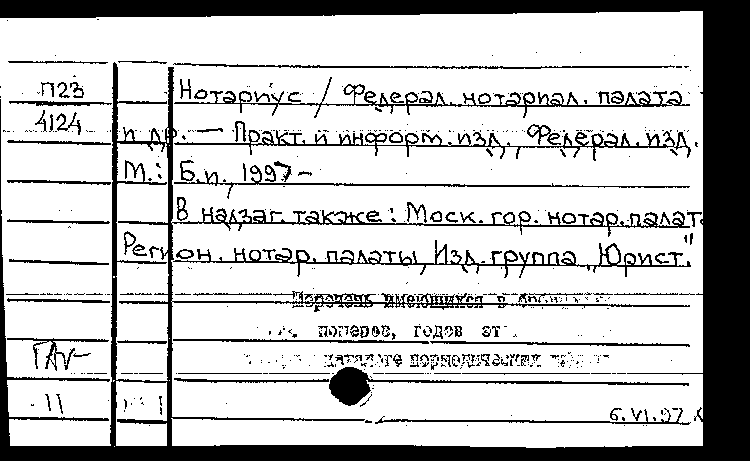 П23
4124
Нотариус / Федерал. нотариал. палата
и др. — Практ. и информ. изд., Федерал. изд.
М.: Б.и., 1997 -
В надзаг. также: Моск. гор. нотар. палата
Регион. нотар. палаты, Изд. группа „Юрист."
Перечень имеющихся в
номеров, годов
каталоге периодических
11
6.VI.97